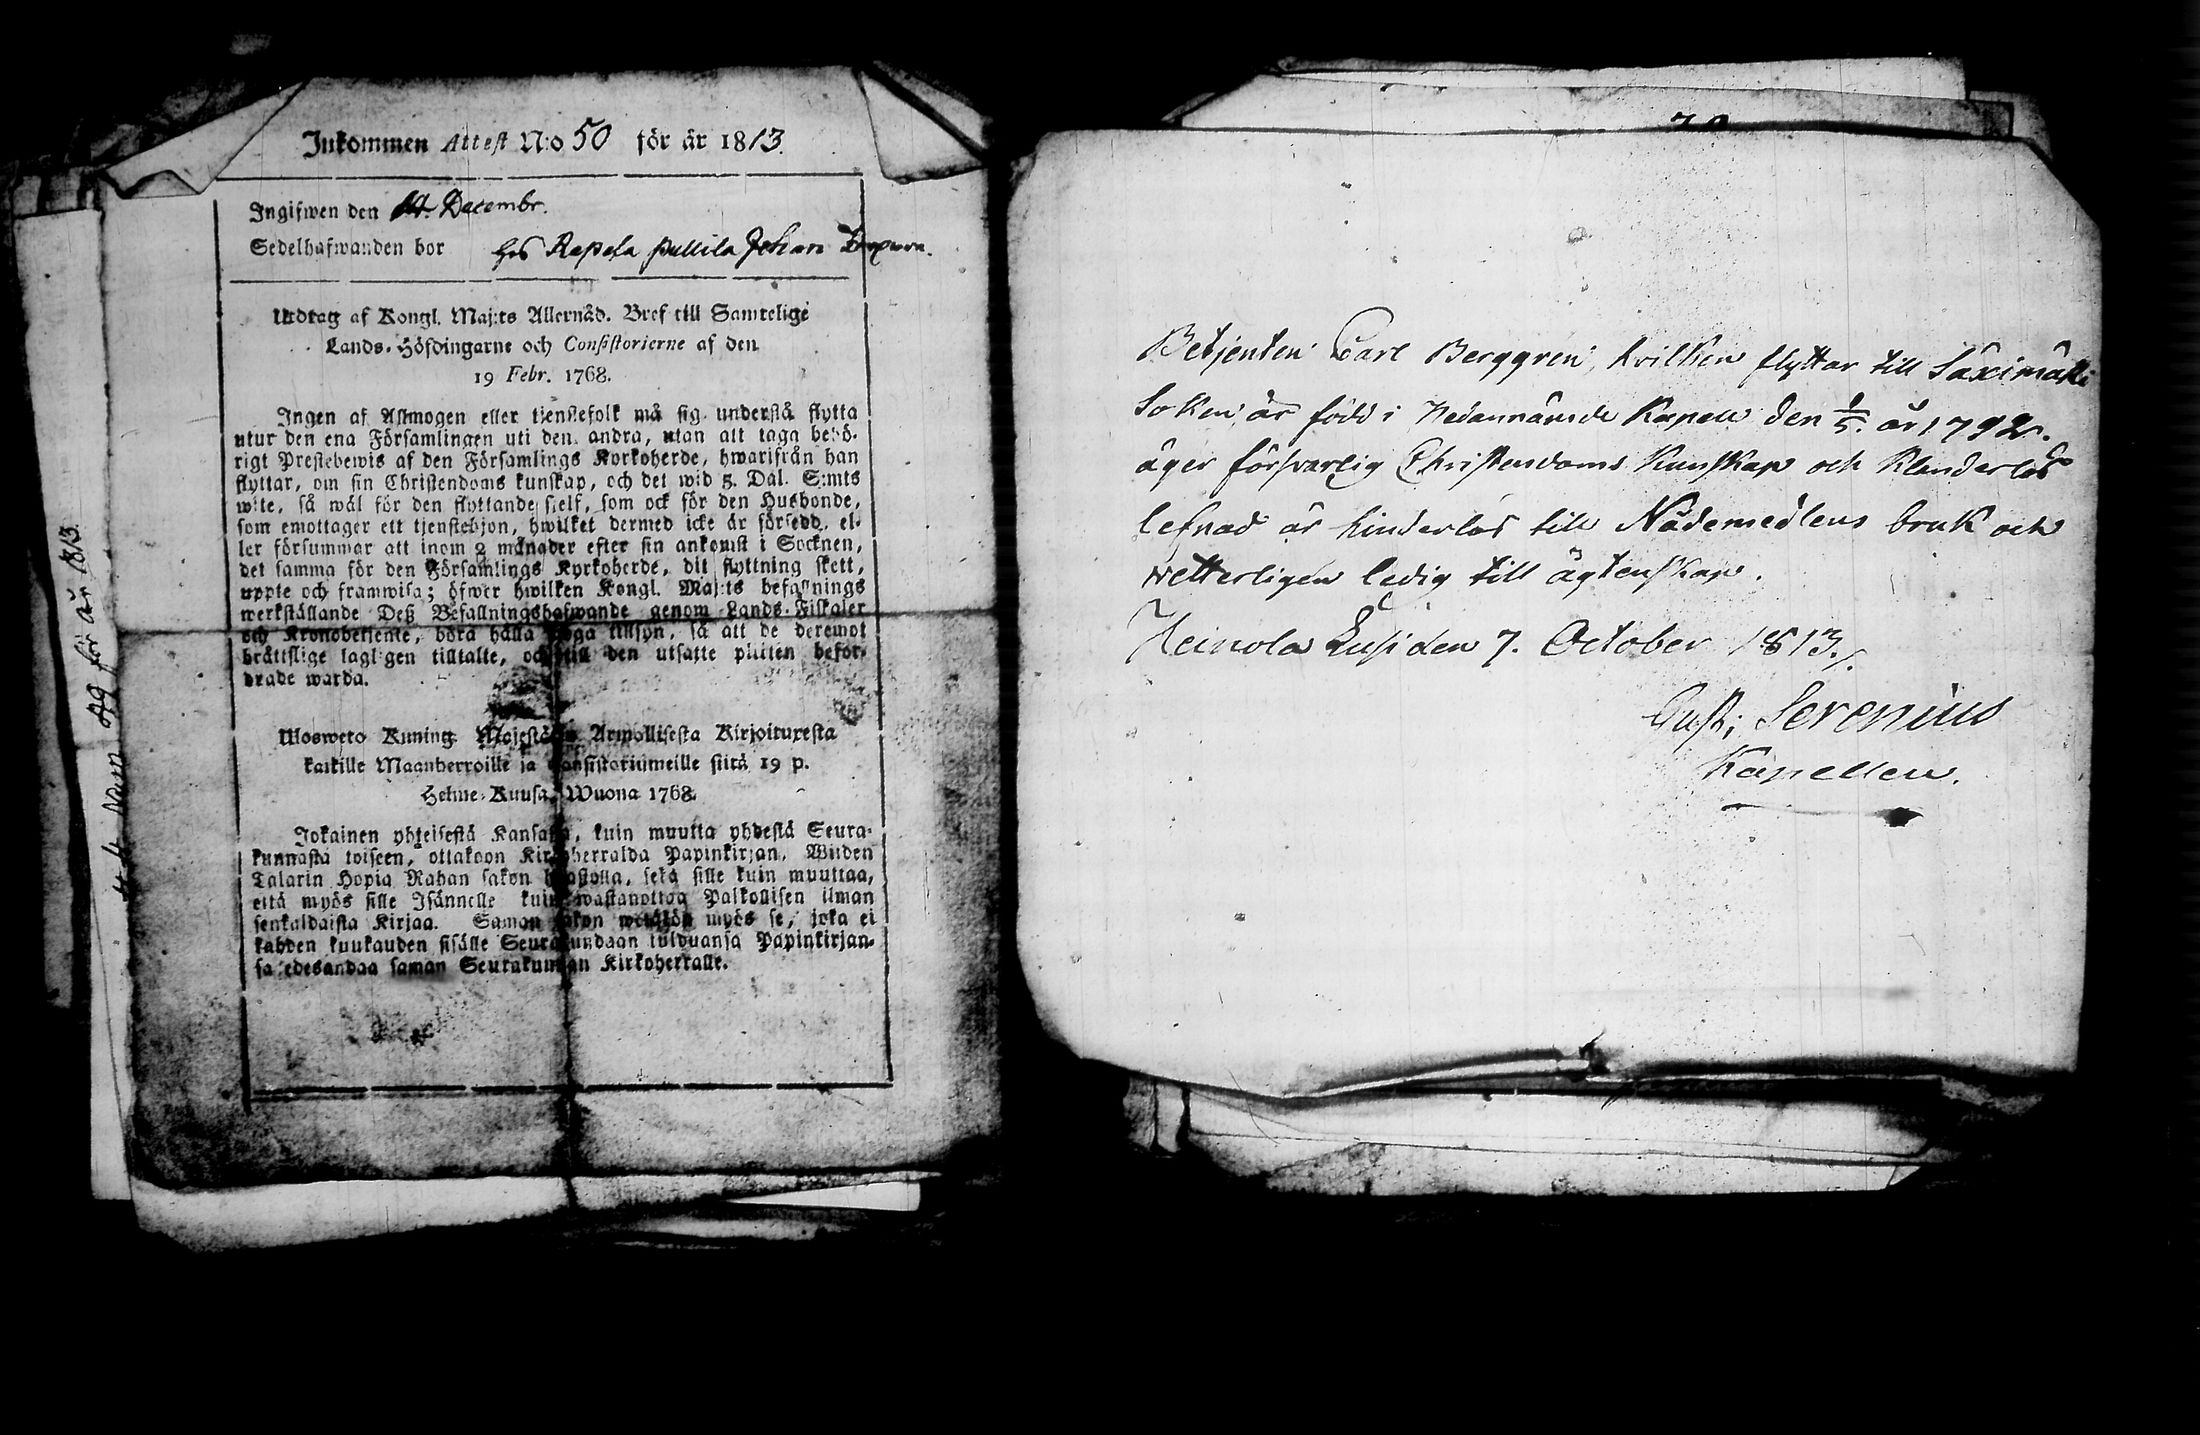 Inkommen Attest N:o 50 för år 1813.
Ingifwen den 14. Decembr.
Sedelhafwanden bor hos Rapala Pullila Johan
Utdrag af Kongl. Maj:ts Allernåd. Bref till Samtelige
Lands-Höfdingarne och Consistorierne af den
19 Febr. 1768.
Ingen af Allmogen eller tjenstefolk må sig understå flytta
utur den ena Församlingen uti den andra, utan att taga behö-
rigt Prestebewis af den Församlings Kyrkoherde, hwarifrån han
flyttar, om sin Christendoms kunskap, och det wid 5. Dal. S:mts
wite, så wäl för den flyttande sielf, som ock för den Husbonde,
som emottager ett tjenstehjon, hwilket dermed icke är försedd, el-
ler försummar att inom 2 månader efter sin ankomst i Socknen,
det samma för den Församlings Kyrkoherde, dit flyttning skett,
uppte och framwisa; öfwer hwilken Kongl. Maj:ts befallnings
werkställande Deß Befallningshafwande genom Lands-Fiskaler
och Kronobetjente, böra hålla noga tillsyn, så att de deremot
brättslige lagligen tilltalte, och till den utsatte plikten befor-
drade warda.
Ulosweto Kuning. Majestätin Armollisesta Kirjoituxesta
kaikille Maanherroille ja Consistoriumeille siitä 19 p.
Helme-Kuusa, Wuona 1768.
Jokainen yhteisestä Kansasta, kuin muutta yhdestä Seura-
kunnasta toiseen, ottakoon Kirkoherralda Papinkirjan, Wiiden
Talarin Hopia Rahan sakon haastolla, sekä sille kuin muuttaa,
että myös sille Isännelle kuin wastanottaa Palkollisen ilman
senkaldaista Kirjaa. Saman sakon wetäkön myös se, joka ei
kahden kuukauden sisälle Seurakundaan tulduansa Papinkirjan-
sa edesandaa saman Seurakunnan Kirkoherralle.
Att. Num 49 för år 1813.
Betjenten Carl Berggren, hvilken flyttar till Säximäki
Soken, är född i Nedannämde Kapell den 1/5. år 1792.
äger försvarlig Christendoms Kunskap och Klanderlös
lefnad är hinderlös till Nådemedlens bruk och
wetterligen ledig till ägtenskap.
Heinola Lusi den 7. October 1813./.
Gust: Serenius
Kapellan.